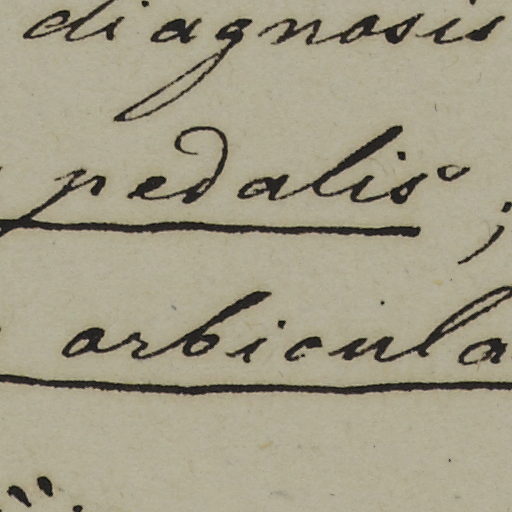 diagnosis
pedalis ;
orbicula
".